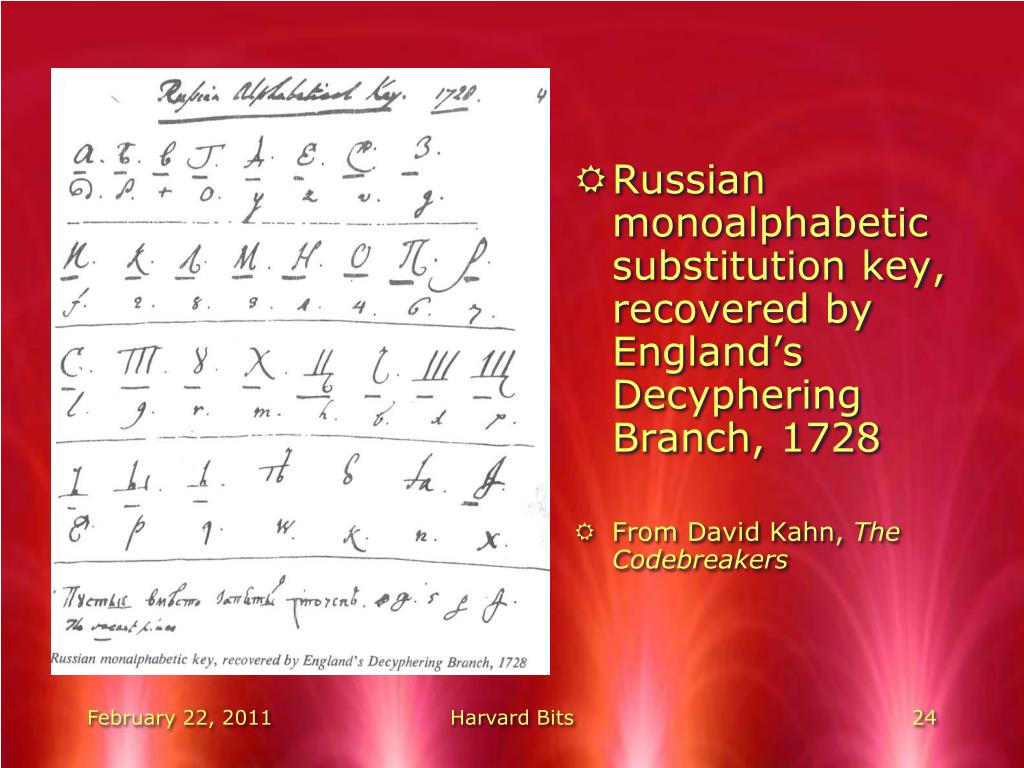 Russian Alphabetical Key. 1728. 4
а. Б. в Г. Д. Е. Ж. З.
+ o. y z v. g.
И. К. Л. М. Н. О П. Р.
f. 2. 8. 9. 1. 4. 6. 7.
С. Т. 8. Х. Ц Ч. Ш Щ
l. g. r. m. h. b. d p.
Ъ Ы. Ь. Ѣ
p q. w. k. n. x.
Пустые вмѣсто запятыхъ
The vacant lines
Russian monalphabetic key, recovered by England's Decyphering Branch, 1728
Russian
monoalphabetic
substitution key,
recovered by
England’s
Decyphering
Branch, 1728
From David Kahn, The
Codebreakers
February 22, 2011 Harvard Bits 24